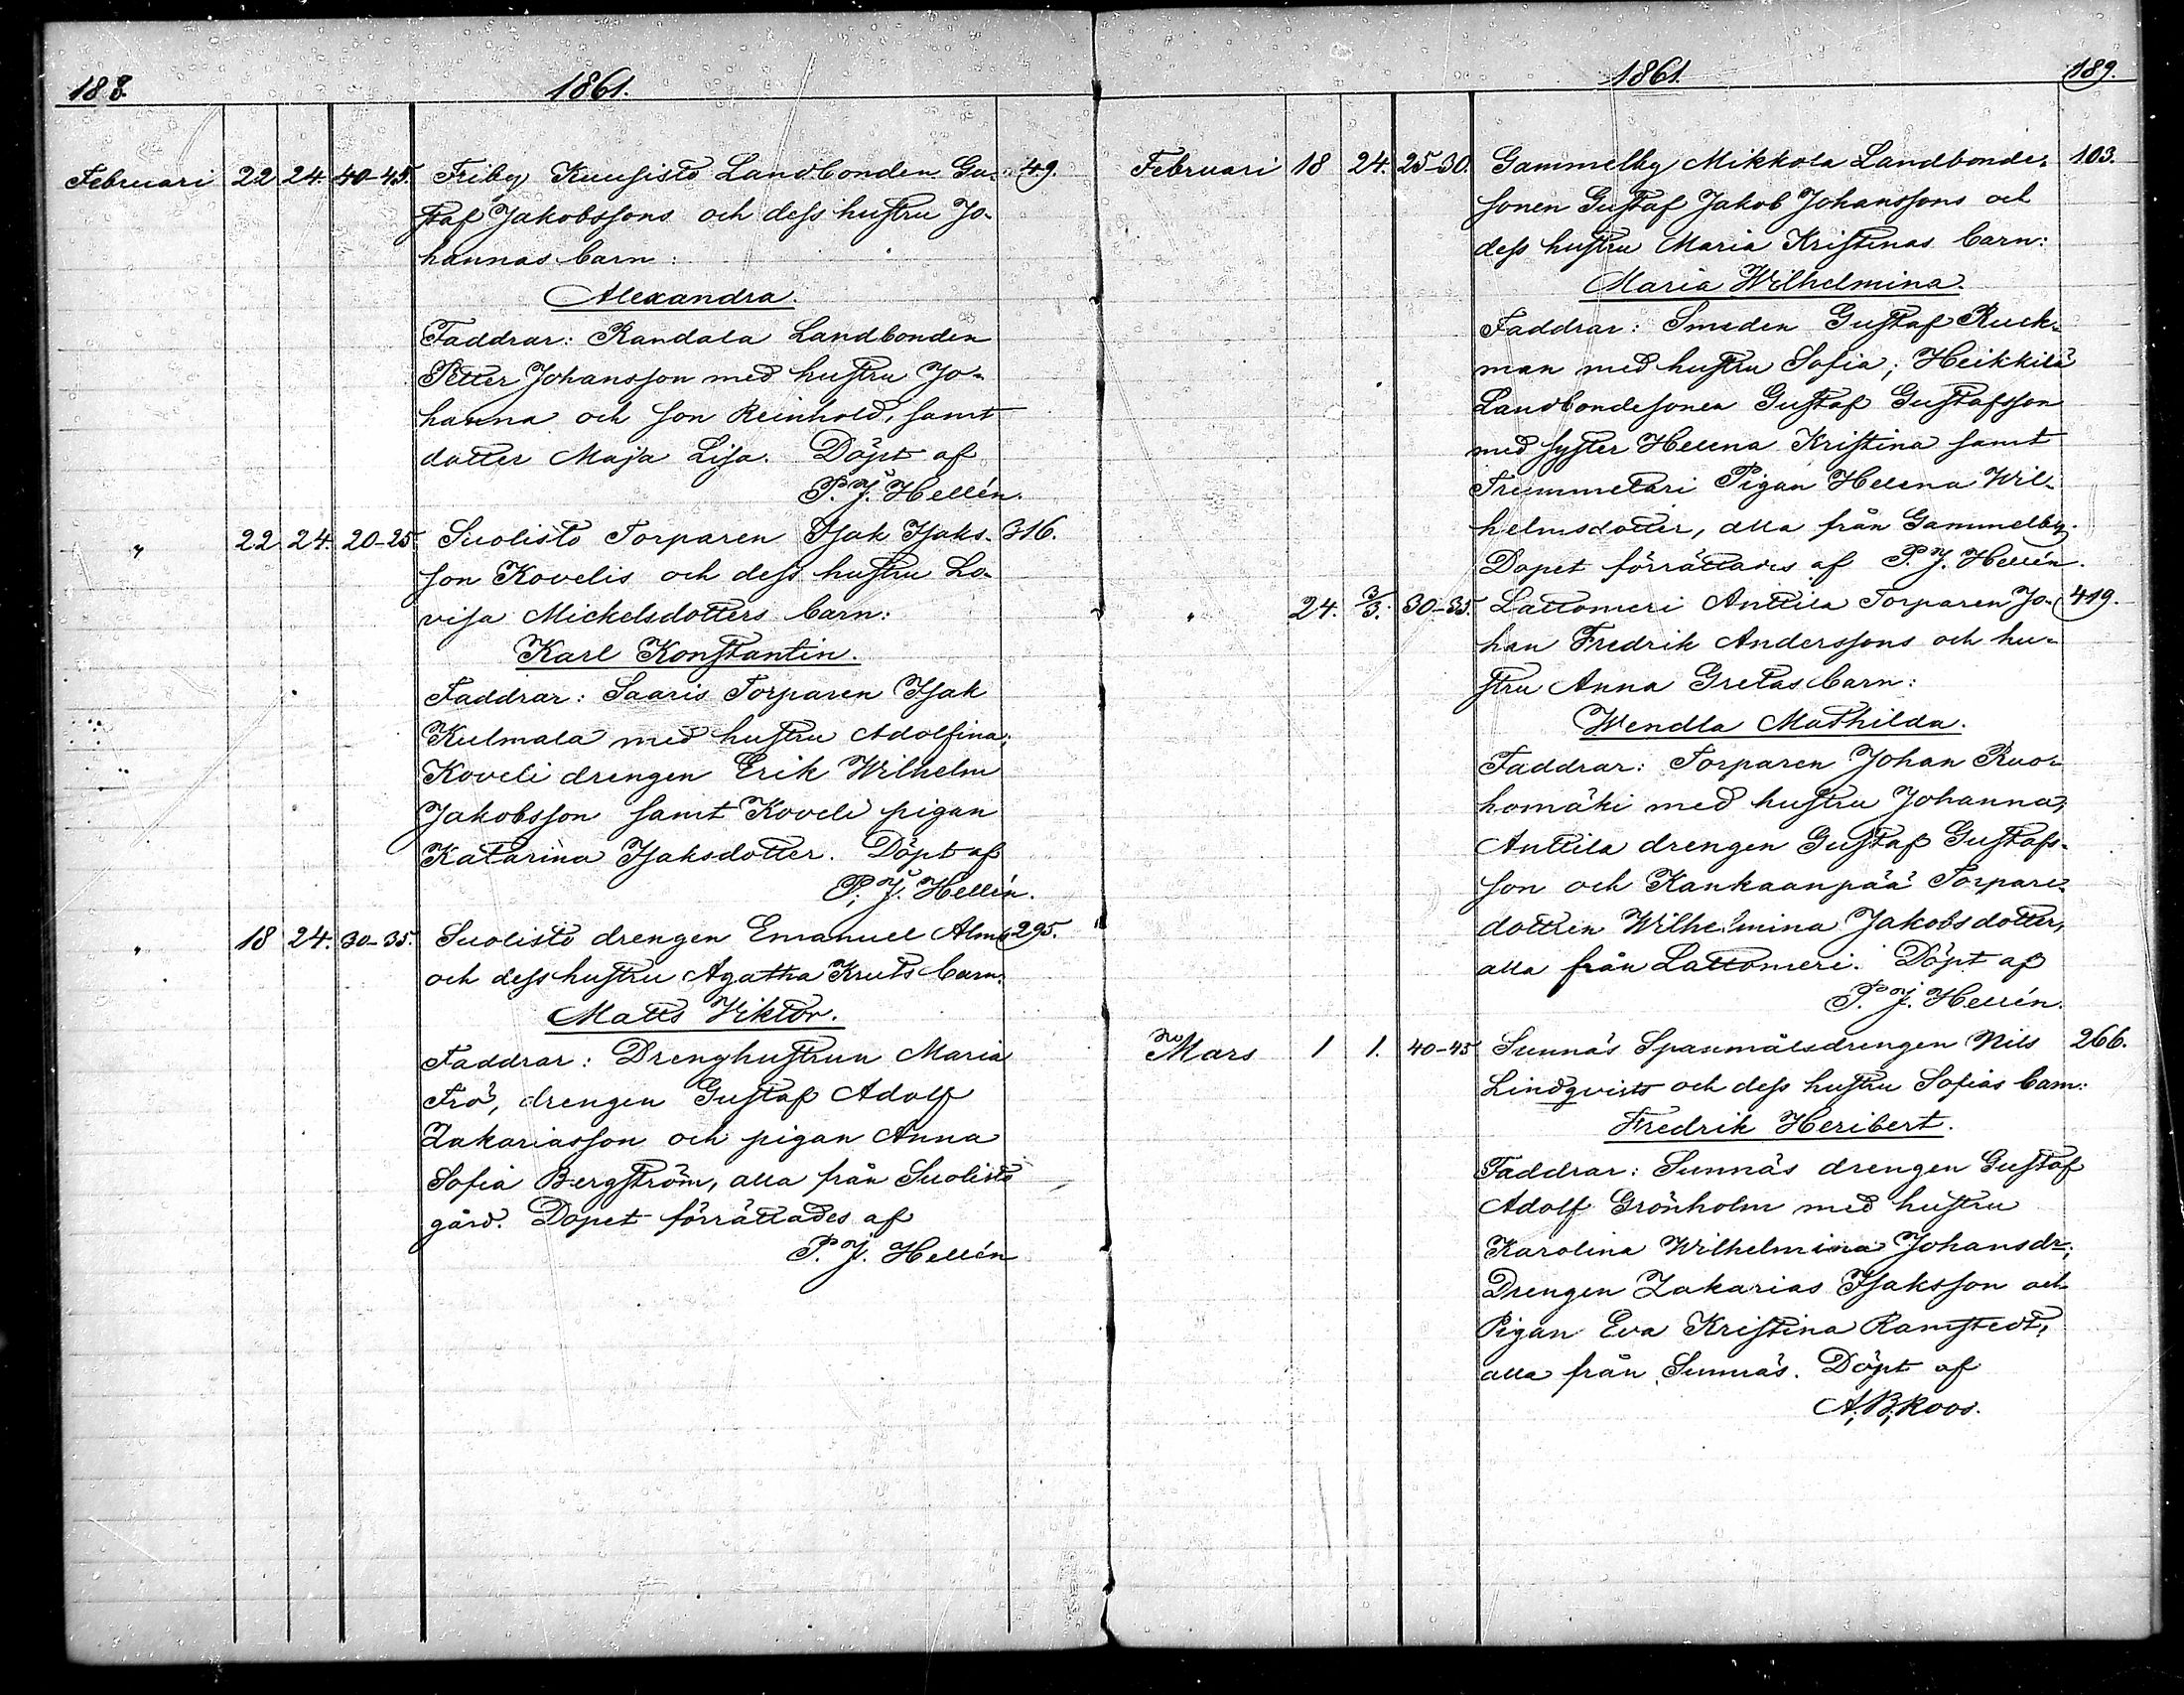 188.
1861.
Februari 22 24. 40-45. Friby Kuusisto Landbonden Gu- 49.
staf Jakobssons och dess hustru Jo-
hannas barn:
Alexandra.
Faddrar: Randala Landbonden
Petter Johansson med hustru Jo-
hanna och son Reinhold, samt
dotter Maja Lisa. Döpt af
P. J. Hellén.
" 22 24. 20-25. Suolisto Torparen Isak Isaks- 316.
son Kovelis och dess hustru Lo-
visa Mickelsdotters barn:
Karl Konstantin.
Faddrar: Saaris Torparen Isak
Kulmala med hustru Adolfina;
Koveli drengen Erik Wilhelm
Jakobsson samt Koveli pigan
Katarina Isaksdotter. Döpt af
P. J. Hellén.
" 18 24. 30-35. Suolisto drengen Emanuel Alms 295.
och dess hustru Agatha Kruts barn:
Matts Viktor.
Faddrar: Drenghustrun Maria
Frö, drengen Gustaf Adolf
Zakariasson och pigan Anna
Sofia Bergström, alla från Suolisto
gård. Dopet förrättades af
P. J. Hellén
1861.
189.
Februari 18 24. 25-30. Gammelby Mikkola Landbonde- 103.
sonen Gustaf Jakob Johanssons och
dess hustru Maria Kristinas barn:
Maria Wilhelmina.
Faddrar: Smeden Gustaf Ruck-
man med hustru Sofia; Heikkilä
Landbondesonen Gustaf Gustafsson
med syster Helena Kristina samt
Trummetari Pigan Helena Wil-
helmsdotter, alla från Gammelby.
Dopet förrättades af P. J. Hellén.
" 24. 3/3. 30-35. Lattomeri Anttila Torparen Jo- 419.
han Fredrik Anderssons och hu-
stru Anna Gretas barn:
Wendla Mathilda.
Faddrar: Torparen Johan Ruo-
homäki med hustru Johanna;
Anttila drengen Gustaf Gustafs-
son och Kankaanpää Torpare-
dottren Wilhelmina Jakobsdotter,
alla från Lattomeri. Döpt af
P. J. Hellén.
Mars 1 1. 40-45 Sunnäs Spanmålsdrengen Nils 266.
Lindqvists och dess hustru Sofias barn:
Fredrik Heribert.
Faddrar: Sunnäs drengen Gustaf
Adolf Grönholm med hustru
Karolina Wilhelmina Johansdr;
Drengen Zakarias Isaksson och
Pigan Eva Kristina Ramstedt,
alla från Sunnäs. Döpt af
A. B. Roos.